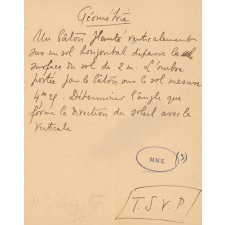 Géométrie
Un bâton planté verticalement
sur un sol horizontal dépasse la
surface du sol de 2 m. L'ombre
portée par le bâton sur le sol mesure
4m 28. Déterminer l'angle que
forme la direction du soleil avec la
verticale
M.N.E. (3)
T.S.V.P